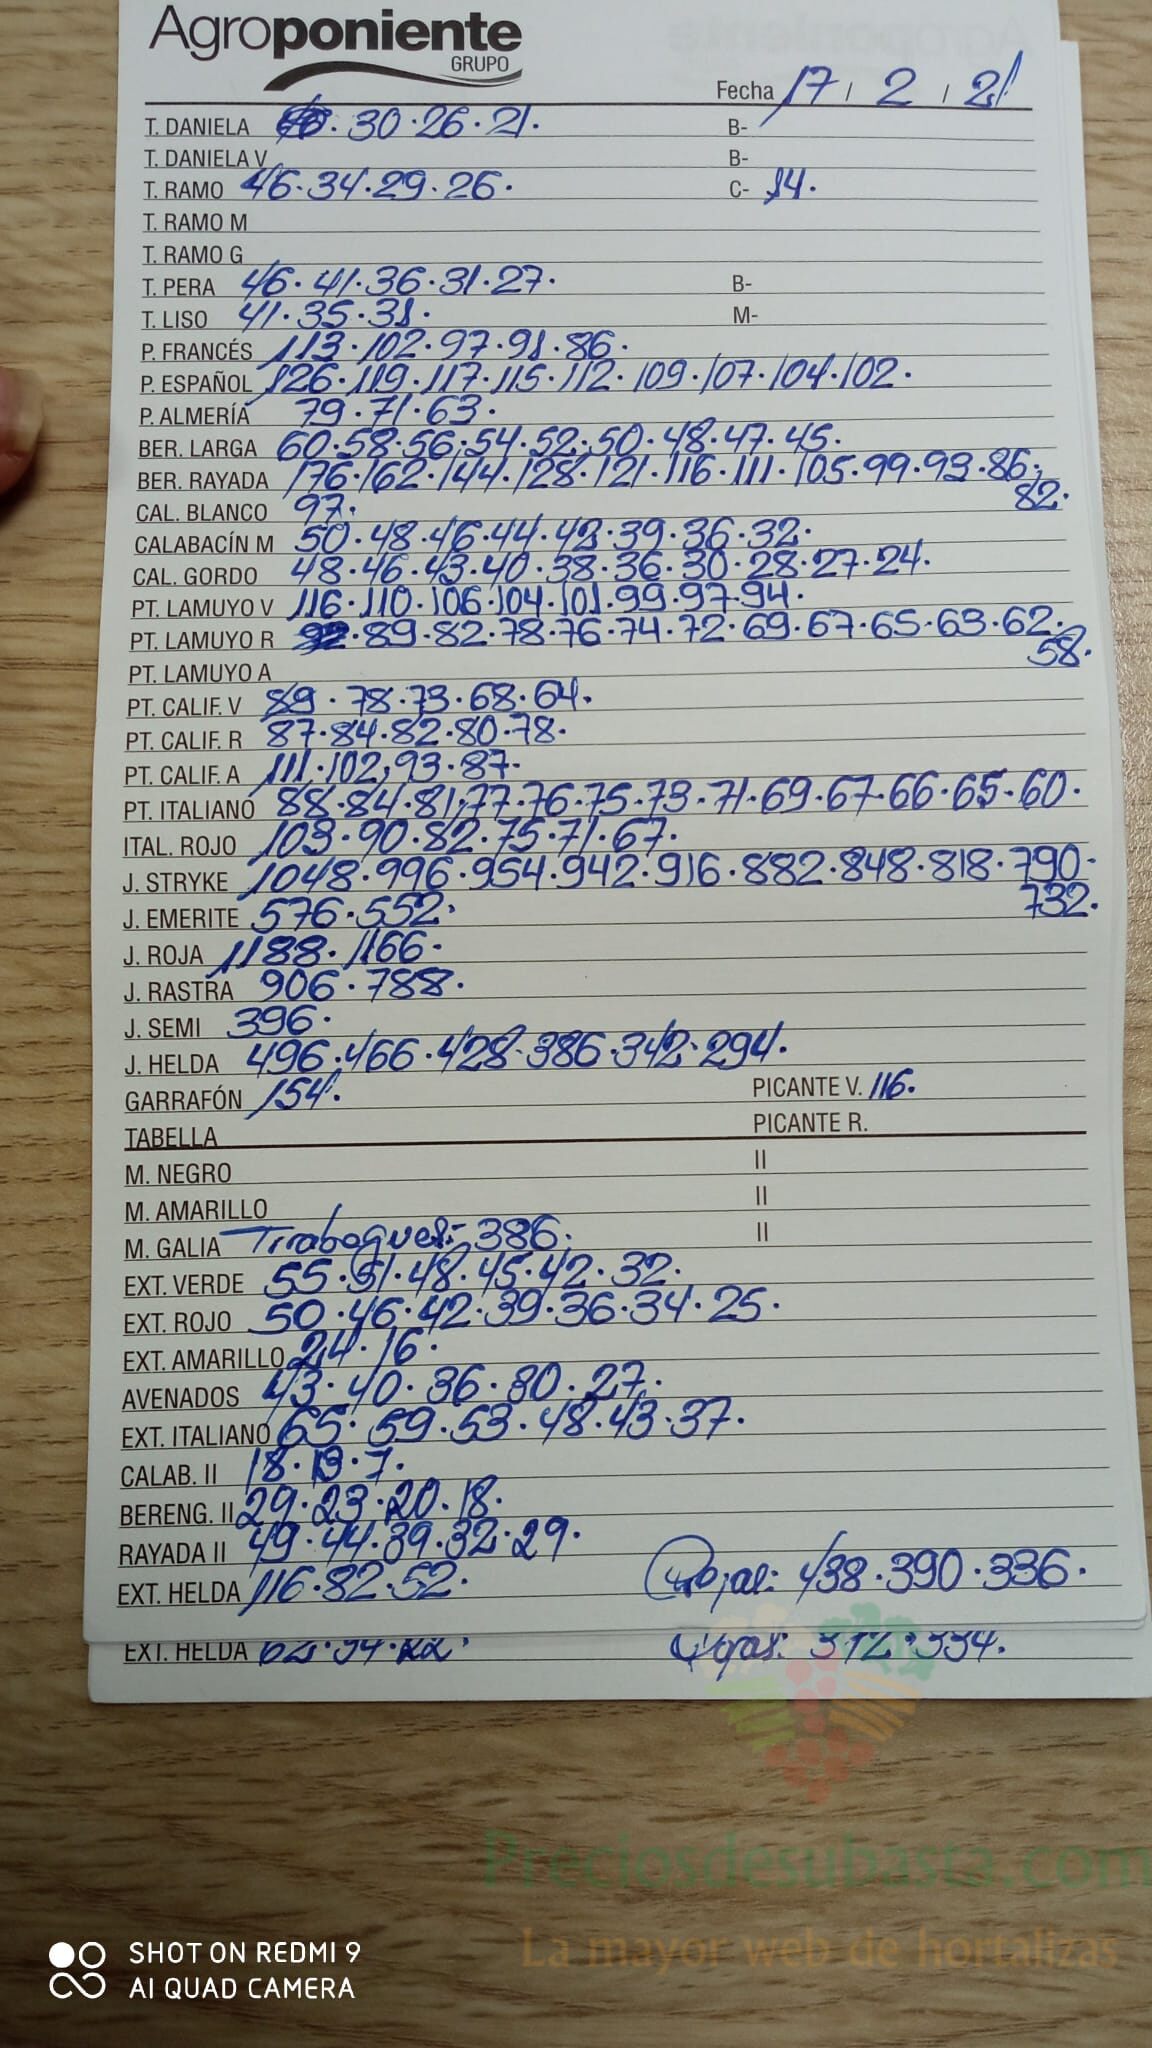 Agroponiente
GRUPO
Fecha 17 / 2 / 21
T. DANIELA 30·26·21· B-
T. DANIELA V B-
T. RAMO 46·34·29·26· C- 14·
T. RAMO M
T. RAMO G
T. PERA 46·41·36·31·27· B-
T. LISO 41·35·31· M-
P. FRANCÉS 113·102·97·91·86·
P. ESPAÑOL 126·119·117·115·112·109·107·104·102·
P. ALMERÍA 79·71·63·
BER. LARGA 60·58·56·54·52·50·48·47·45·
BER. RAYADA 176·162·144·128·121·116·111·105·99·93·86·
82·
CAL. BLANCO 97·
CALABACÍN M 50·48·46·44·42·39·36·32·
CAL. GORDO 48·46·43·40·38·36·30·28·27·24·
PT. LAMUYO V 116·110·106·104·101·99·97·94·
PT. LAMUYO R 92·89·82·78·76·74·72·69·67·65·63·62·
58·
PT. LAMUYO A
PT. CALIF. V 89·78·73·68·64·
PT. CALIF. R 87·84·82·80·78·
PT. CALIF. A 111·102·93·87·
PT. ITALIANO 88·84·81·77·76·75·73·71·69·67·66·65·60·
ITAL. ROJO 103·90·82·75·71·67·
J. STRYKE 1048·996·954·942·916·882·848·818·790·
732·
J. EMERITE 576·552·
J. ROJA 1188·1166·
J. RASTRA 906·788·
J. SEMI 396·
J. HELDA 496·466·428·386·342·294·
GARRAFÓN 154· PICANTE V. 116·
TABELLA PICANTE R.
M. NEGRO II
M. AMARILLO II
M. GALIA Tirabeques: 386· II
EXT. VERDE 55·51·48·45·42·32·
EXT. ROJO 50·46·42·39·36·34·25·
EXT. AMARILLO 24·16·
AVENADOS 43·40·36·30·27·
EXT. ITALIANO 65·59·53·48·43·37·
CALAB. II 18·13·7·
BERENG. II 29·23·20·18·
RAYADA II 49·44·39·32·29·
EXT. HELDA 116·82·52· 438·390·336·
EXT. HELDA 334·
Preciosdesubasta.com
La mayor web de hortalizas
SHOT ON REDMI 9
AI QUAD CAMERA